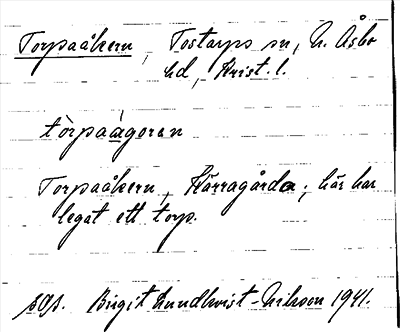 Torpaåkern, Tostarps sn, N. Åsbo
hd, Krist. l.
tòrpaágoran
Torpaåkern, Kärragårda; här har
legat ett torp.
Birgit Lundkvist-Nilsson 1941.